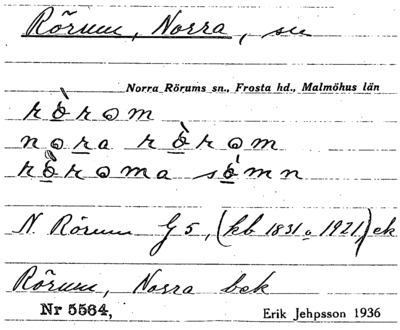 Rörum, Norra, sn
Norra Rörums sn., Frosta hd., Malmöhus län
rö̀rom
nora rö̀rom
rö̀roma sömn
N. Rörum G5, (kb 1831 o 1921) ek
Rörum, Norra bek
Nr 5564,
Erik Jehpsson 1936